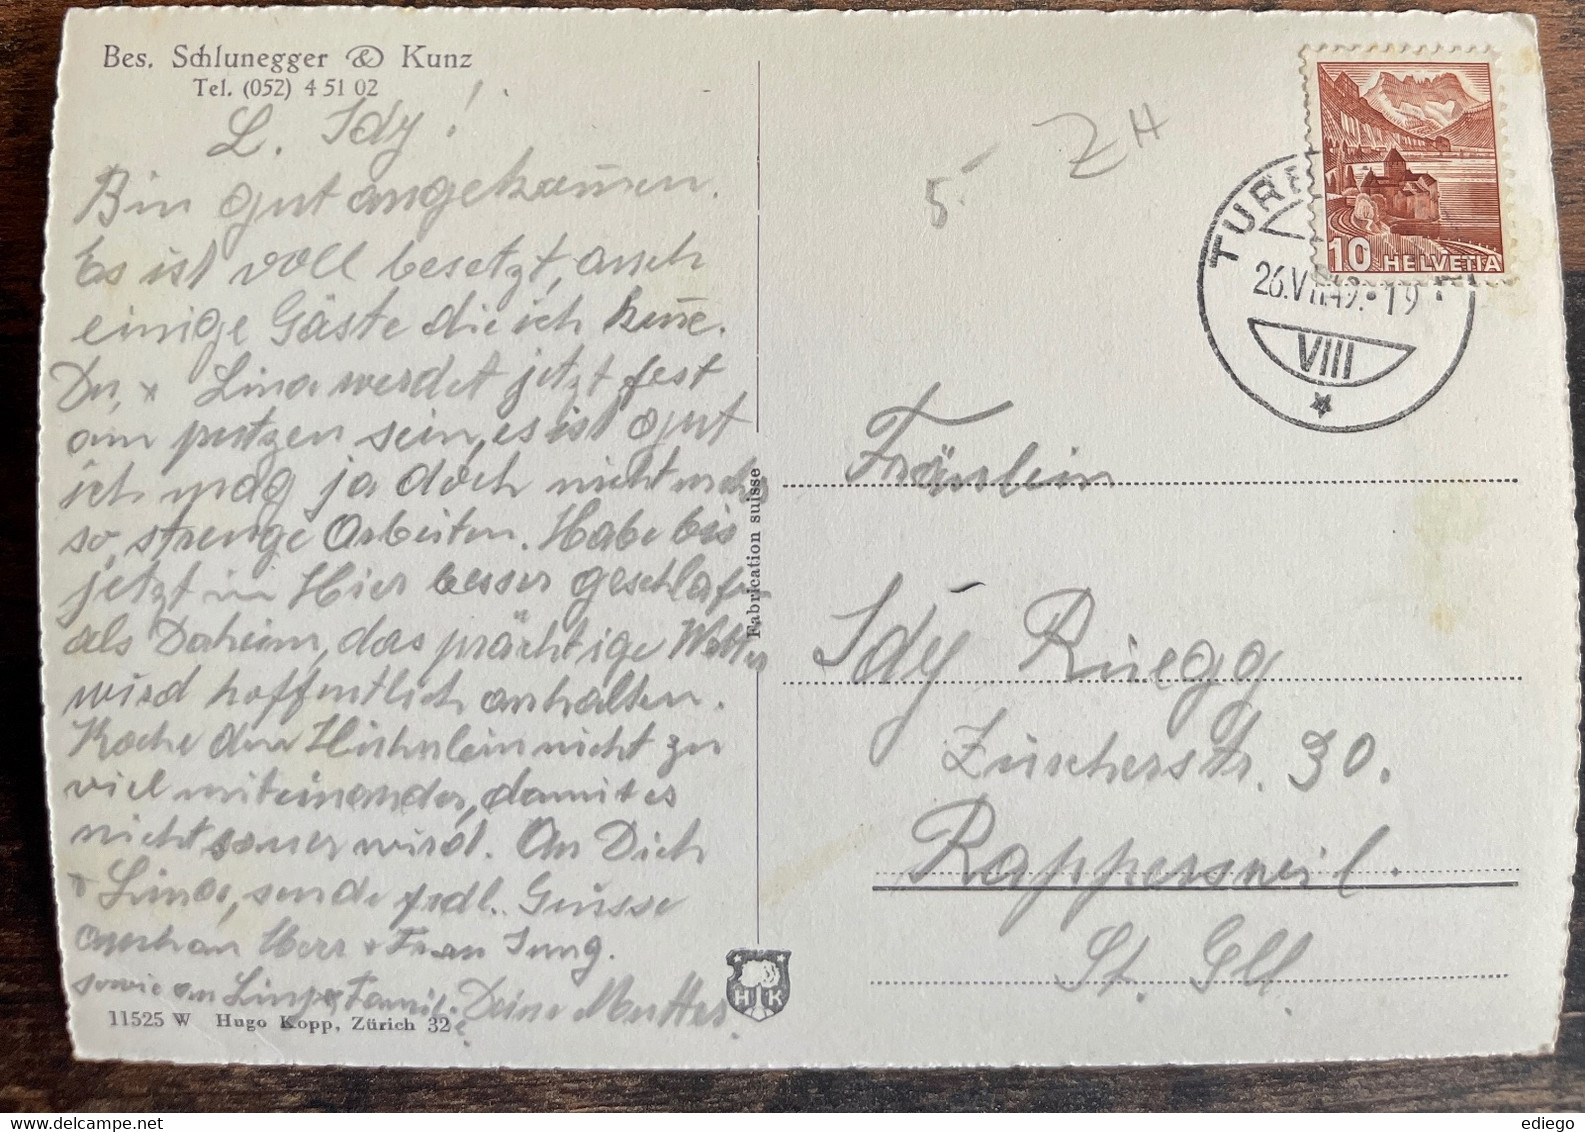 Bes. Schlunegger & Kunz
Tel. (052) 4 51 02
L. Idy!
Bin gut angekom̅en.
Es ist voll besetzt, auch
einige Gäste die ich ken̅e.
Du, + Lina werdet jetzt fest
am putzen sein, es ist gut
ich mag ja doch nicht mehr
so, strenge Arbeiten. Habe bis
jetzt in Hier besser geschlafen
als Daheim, das prächtige Wetter
wird hoffentlich anhalten.
Koche den Hühnlein nicht zu
viel miteinander, damit es
nicht sauer wird. An Dich
+ Lina, sende frdl. Grüsse
auch an Herr + Frau Jung.
sowie an Familie. Deine Mutter.
11525 W Hugo Kopp, Zürich 32
Fabrication suisse
H K
ZH
5.-
TURB
26.VII.49.-19
VIII
10 HELVETIA
Fräulein
Idy Rüegg
Zürcherstr. 30.
Rapperswil.
St. Gll
ediego